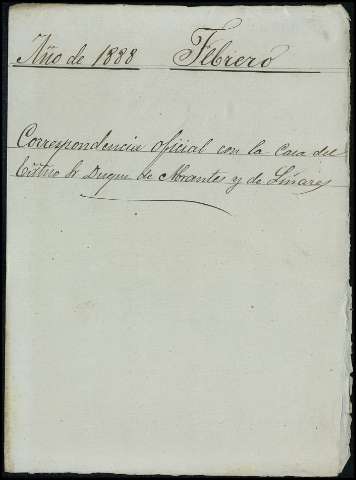 Año de 1888 Febrero
Correspondencia oficial con la Casa del
Exmo Sr Duque de Abrantes y de Linares